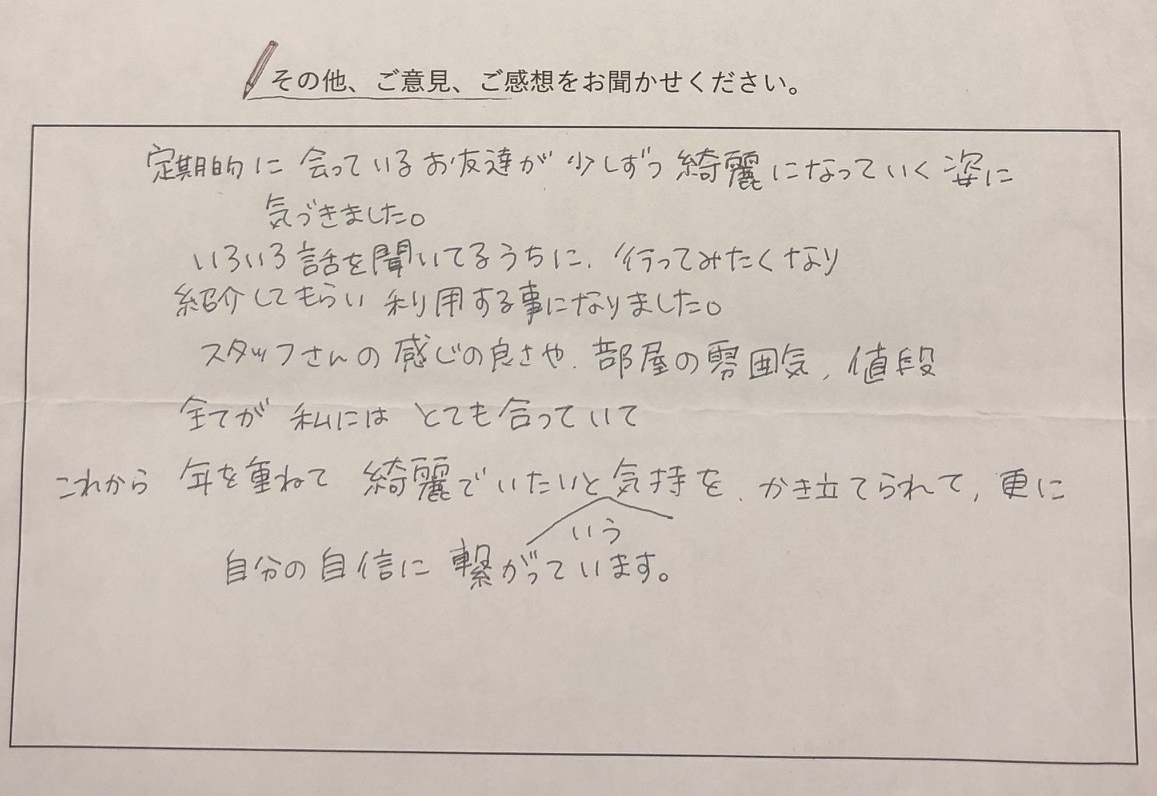 その他、ご意見、ご感想をお聞かせください。
定期的に会っているお友達が少しずつ綺麗になっていく姿に
気づきました。
いろいろ話を聞いてるうちに、行ってみたくなり
紹介してもらい利用する事になりました。
スタッフさんの感じの良さや、部屋の雰囲気、値段
全てが私にはとても合っていて
これから年を重ねて綺麗でいたいと気持を、かき立てられて、更に
いう
自分の自信に繋がっています。